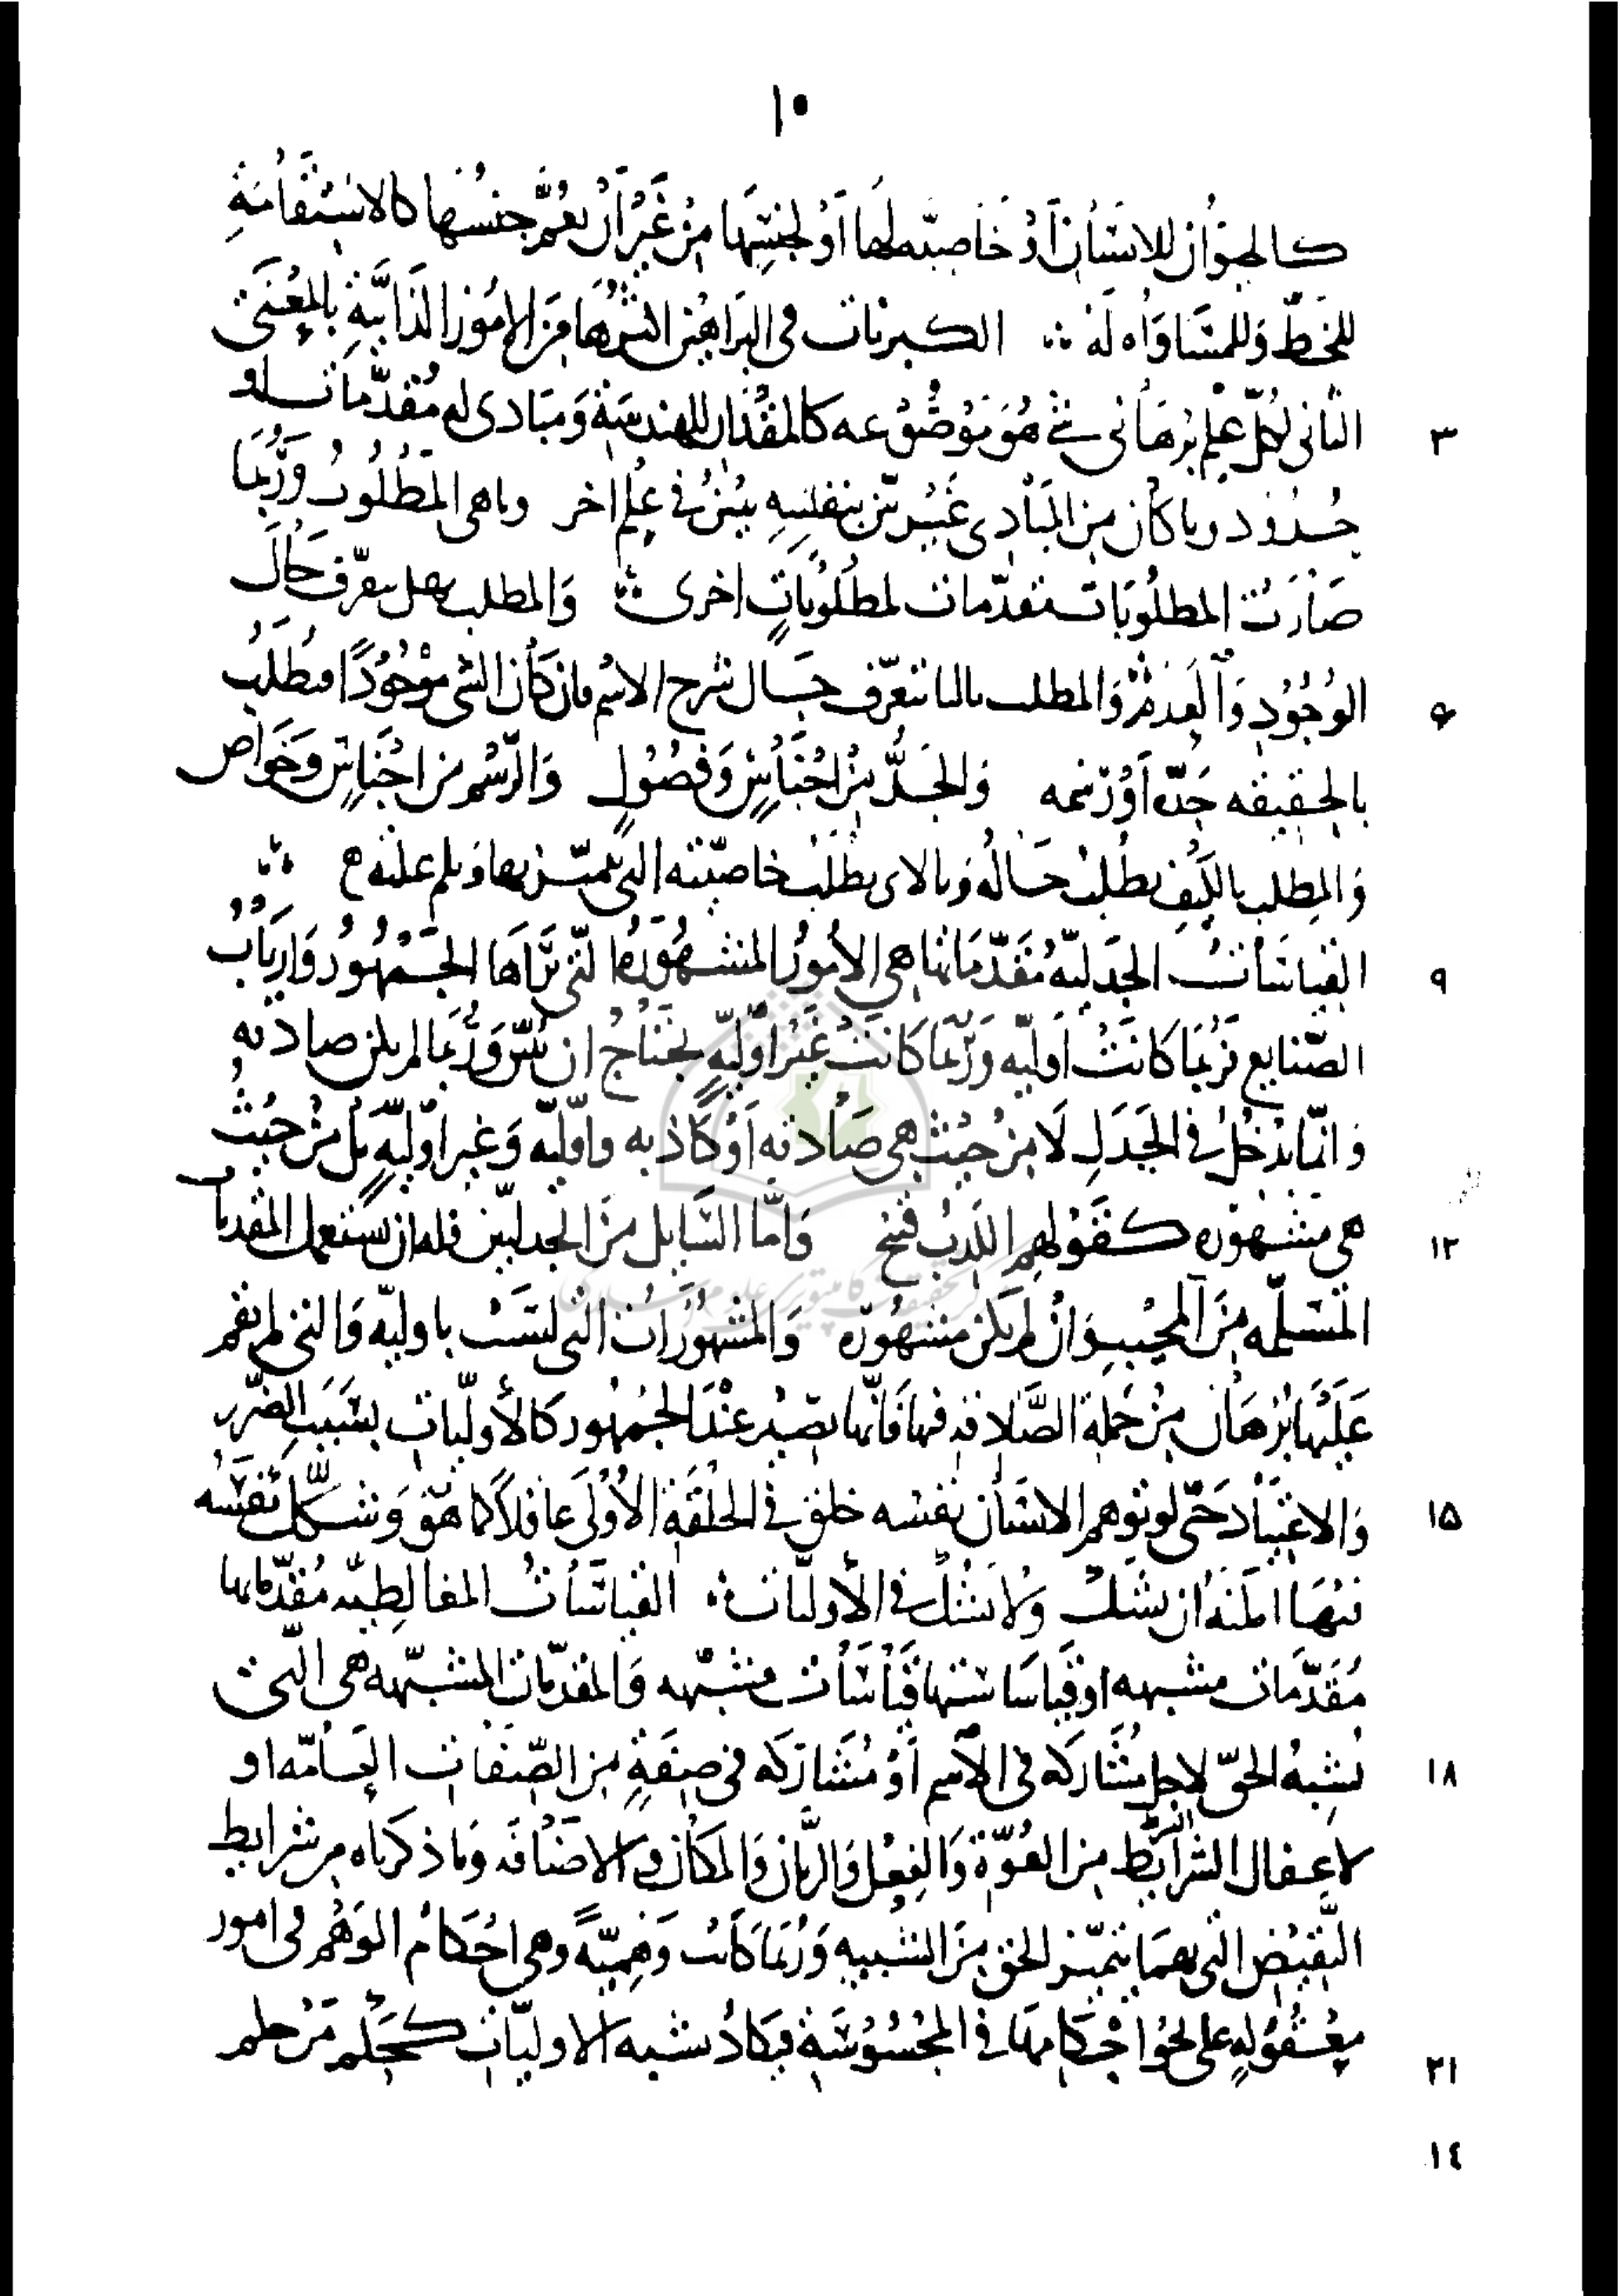 ١٠
كالحيوان للانسان أو خاصيه لها أو لجنسها من غير أن يعم جنسها كالاستقامة
للخط وللمساواه له ∴ الكبريات في البراهين اكثرها من الامور الذاتية بالمعنى
الثاني لكل علم برهاني شي هو موضوعه كالمقدار للهندسة ومبادى له مقدمات او
٣
حدود وما كان من المبادى غير بين بنفسه يبين في علم اخر وما هي المطلوب وربما
صارت المطلوبات مقدمات لمطلوبات اخرى ∴ والمطلب بهل يتعرف حال
الوجود والعدم والمطلب بالما يتعرف حال شرح الاسم فان كان الشي موجودا فيطلب
۶
بالحقيقه حده أو رسمه والحد من اجناس وفصول والرسم من اجناس وخواص
والمطلب بالكيف يطلب حاله وبالاى يطلب خاصيته التي يتميز بها وبلم علته ∴
القياسات الجدليه مقدماتها هي الأمور المشهوره التي يراها الجمهور وارباب
٩
الصنايع فربما كانت اوليه وربما كانت غير اوليه يحتاج ان تبين وربما لم يكن صادقه
وانما تدخل في الجدل لا من حيث هي صادقه أو كاذبه واوليه وغير اوليه بل من حيث
هي مشهوره كقولهم الكذب قبيح واما السايل من الجدليين فله ان يستعمل المقدمات
١٢
المتسلمه من المجيب وان لم يكن مشهوره والمشهورات التي ليست باوليه والتي لم يقم
عليها برهان من جملة الصادقه فيها فانها تصير عند الجمهور كالأوليات بسبب التمرن
والاعتياد حتى لو توهم الانسان نفسه خلق في الخلقة الأولى عاقلا كما هو وشكك نفسه
١۵
فيها امكنه ان يشك ولا يشك في الأوليات ∴ القياسات المغالطيه مقدماتها
مقدمات مشبهه او قياساتها قياسات مشبهه والمقدمات المشبهه هي التي
تشبه الحق لاجل مشاركه في الاسم أو مشاركه في صفة من الصفات العامه او
١٨
لاغفال الشرايط من القوة والفعل والزمان والمكان والاضافه وما ذكرناه من شرايط
النقيض التي بها يتميز الحق من الشبيه وربما كانت وهمية وهي احكام الوهم في امور
معقوله على نحو احكامها في المحسوسة فيكاد تشبه الاوليات كحكم من حكم
٢١
١٤